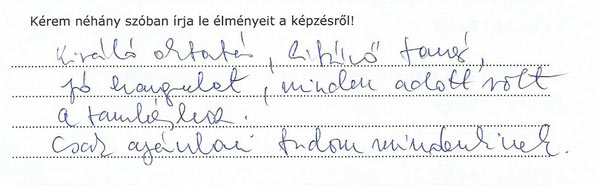 Kérem néhány szóban írja le élményeit a képzésről!
Kiváló oktatás, kitűnő tanár,
jó hangulat, minden adott volt
a tanuláshoz.
Csak ajánlani tudom mindenkinek.